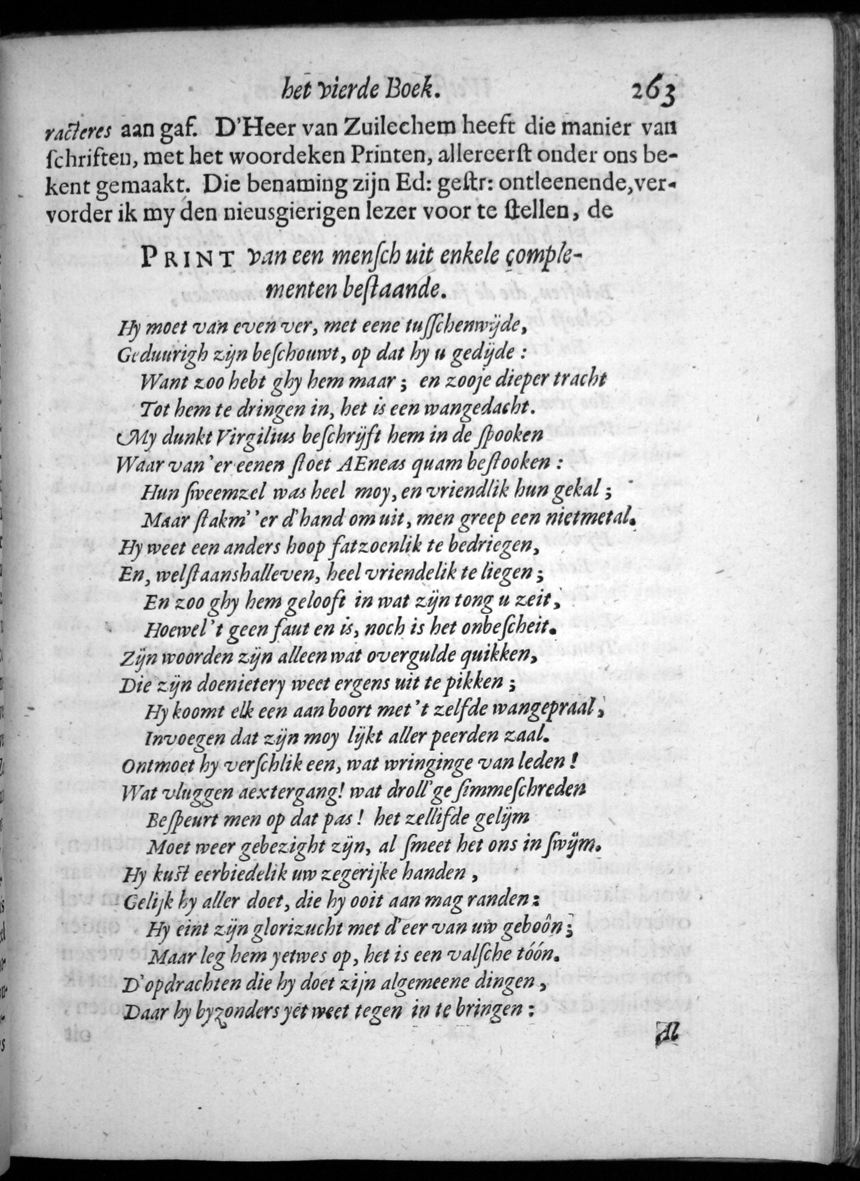 het vierde Boek. 263
racteres aan gaf. D'Heer van Zuilechem heeft die manier van
ſchriften, met het woordeken Printen, allereerſt onder ons be-
kent gemaakt. Die benaming zijn Ed: geſtr: ontleenende, ver-
vorder ik my den nieusgierigen lezer voor te ſtellen, de
PRINT van een menſch uit enkele comple-
menten beſtaande.
Hy moet van even ver, met eene tuſſchenwijde,
Geduurigh zijn beſchouwt, op dat hy u gedijde :
Want zoo hebt ghy hem maar ; en zooje dieper tracht
Tot hem te dringen in, het is een wangedacht.
My dunkt Virgilius beſchrijft hem in de ſpooken
Waar van 'er eenen ſtoet AEneas quam beſtooken :
Hun ſweemzel was heel moy, en vriendlik hun gekal ;
Maar ſtakm' 'er d'hand om uit, men greep een nietmetal.
Hy weet een anders hoop fatzoenlik te bedriegen,
En, welſtaanshalleven, heel vriendelik te liegen ;
En zoo ghy hem gelooft in wat zijn tong u zeit,
Hoewel 't geen faut en is, noch is het onbeſcheit.
Zijn woorden zijn alleen wat overgulde quikken,
Die zijn doenietery weet ergens uit te pikken ;
Hy koomt elk een aan boort met 't zelfde wangepraal,
Invoegen dat zijn moy lijkt aller peerden zaal.
Ontmoet hy verſchlik een, wat wringinge van leden !
Wat vluggen aextergang! wat droll'ge ſimmeſchreden
Beſpeurt men op dat pas ! het zellifde gelijm
Moet weer gebezight zijn, al ſmeet het ons in ſwijm.
Hy kust eerbiedelik uw zegerijke handen,
Gelijk hy aller doet, die hy ooit aan mag randen :
Hy eint zijn glorizucht met d'eer van uw geboôn ;
Maar leg hem yetwes op, het is een valſche tóón.
D'opdrachten die hy doet zijn algemeene dingen,
Daar hy byzonders yet weet tegen in te bringen :
Al